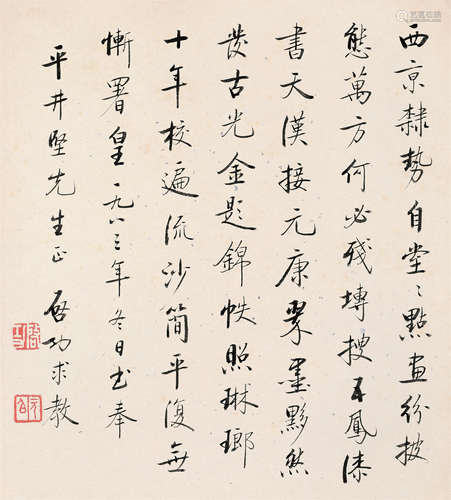 西京隸勢自堂〻點畫紛披
態萬方何必殘塼搜五鳳漆
書天漢接元康翠墨黟然
發古光金題錦帙照琳瑯
十年校遍流沙簡平復無
慚署皇一九八三年冬日書奉
平井堅先生正 啓功求教